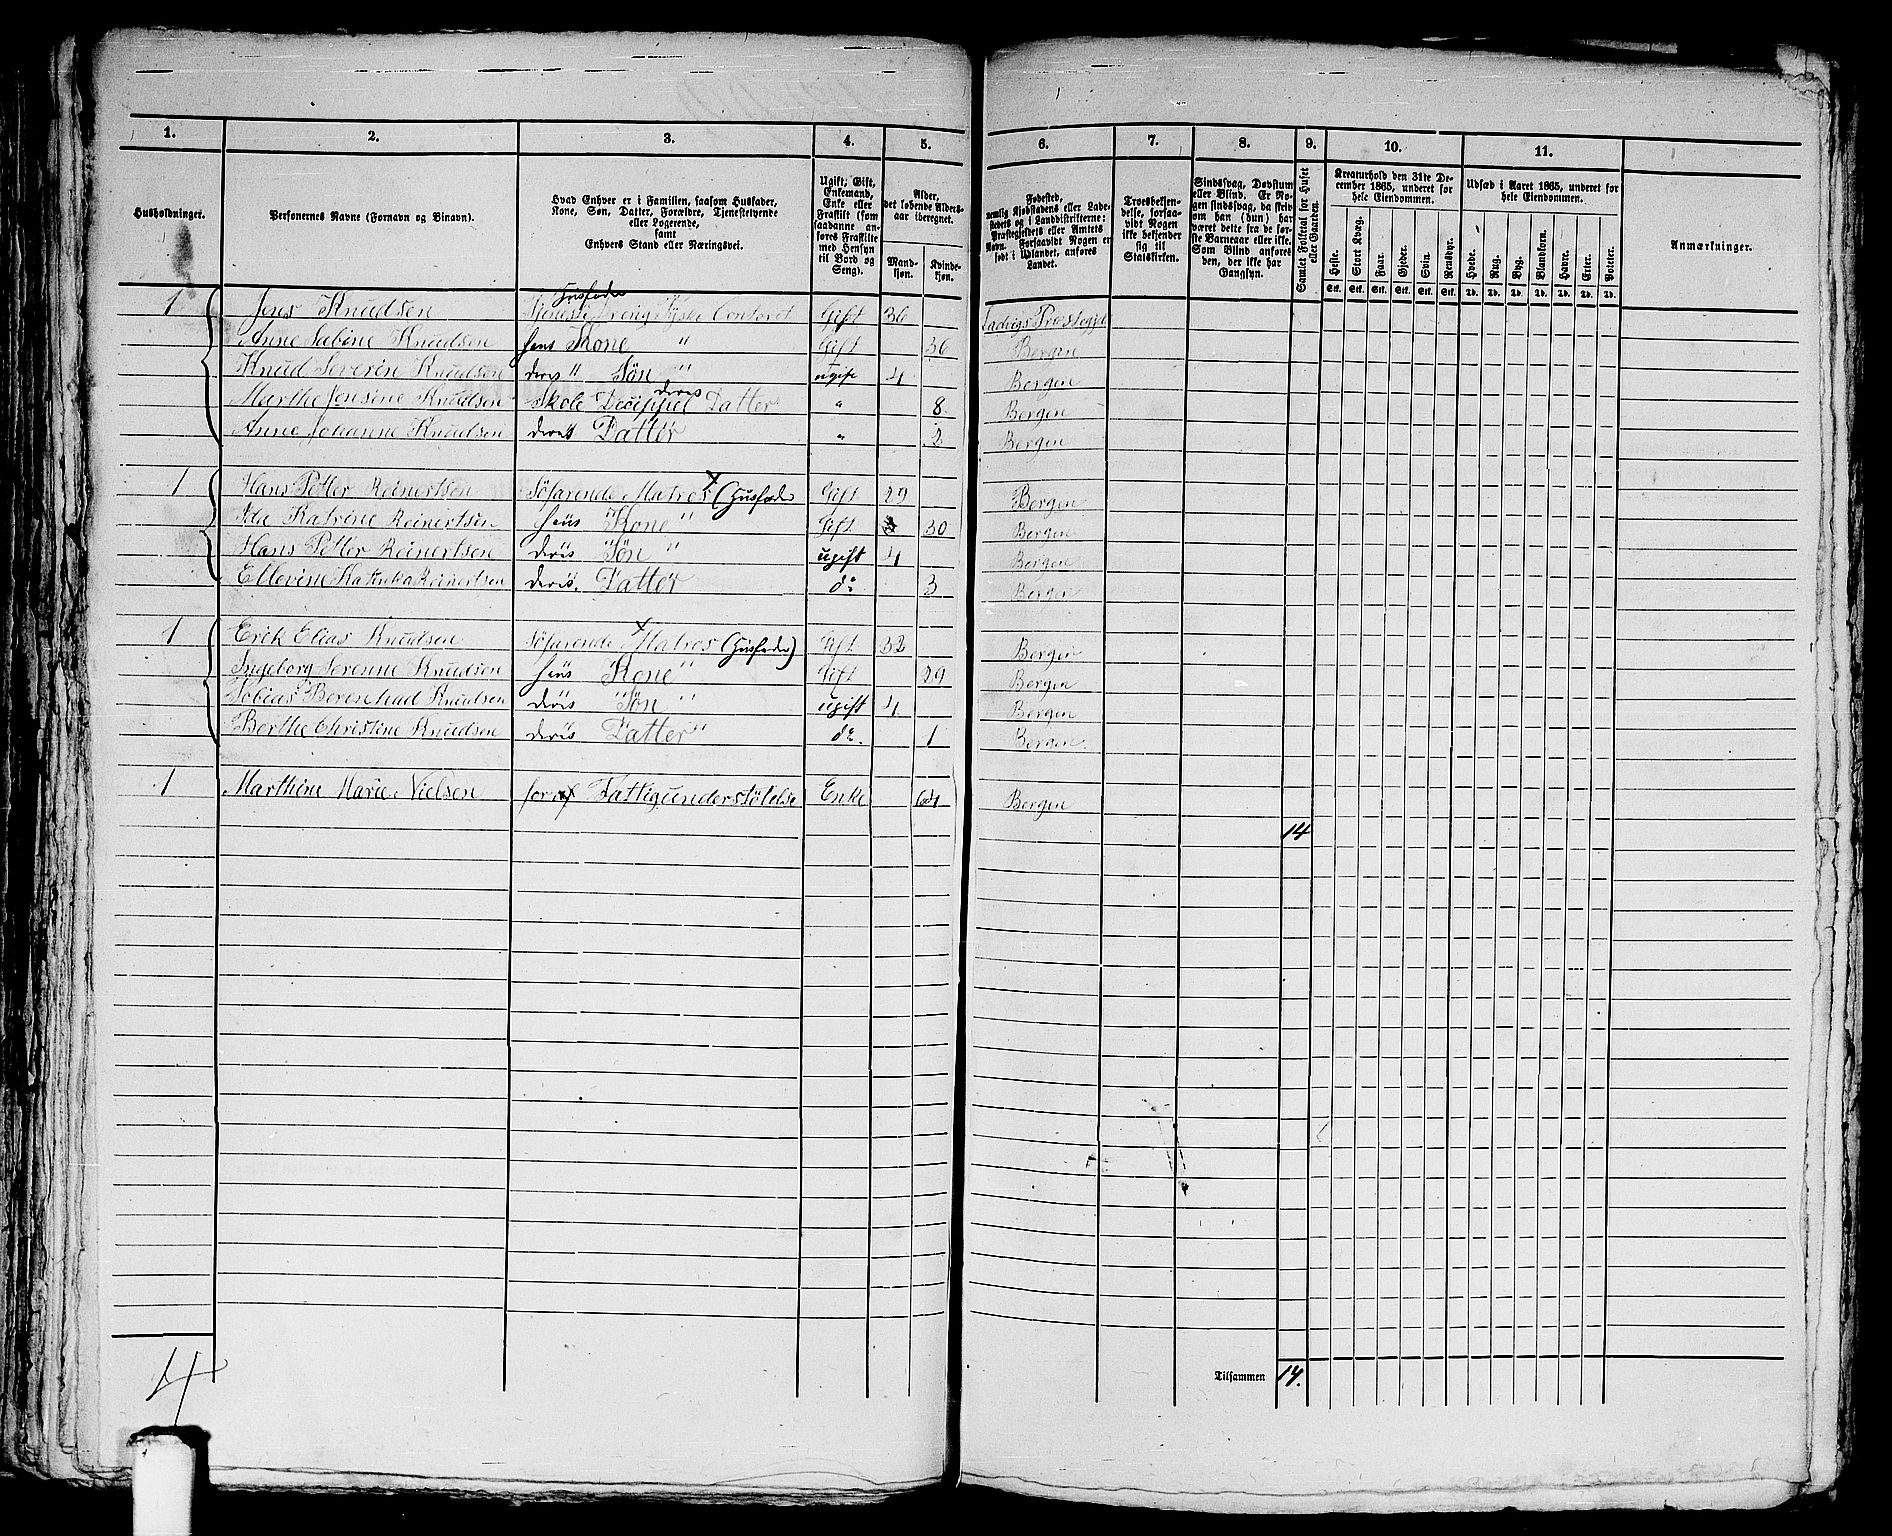 1. 2. 3. 4. 5. 6. 7. 8. 9. 10. 11.
Husholdninger.
Personernes Navne (Fornavn og Binavn).
Hvad Enhver er i Familien, saasom Husfader,
Kone, Søn, Datter, Forældre, Tjenestetyende
eller Logerende,
samt
Enhvers Stand eller Næringsvei.
Ugift, Gift,
Enkemand,
Enke eller
Fraskilt (som
saadanne an-
føres Fraskilte
med Hensyn
til Bord og
Seng).
Alder,
det løbende Alders-
aar iberegnet.
Mand-
kjøn.
Kvinde-
kjøn.
Fødested,
nemlig Kjøbstadens eller Lade-
stedets og i Landdistrikterne:
Præstegjeldets eller Amtets
Navn. Forsaavidt Nogen er
født i Udlandet, anføres
Landet.
Troesbekjen-
delse, forsaa-
vidt Nogen
ikke bekjender
sig til
Statskirken.
Sindssvag, Døvstum
eller Blind. Er No-
gen sindssvag, da skriv
om han (hun) har
været dette fra de før-
ste Barneaar eller ikke.
Som Blind anføres
den, der ikke har
Gangsyn.
Samlet Folketal for Huset
eller Gaarden.
Kreaturhold den 31te De-
cember 1865, underet for
hele Eiendommen.
Heste. Stort Kvæg. Faar. Gjeder. Svin. Rensdyr.
Stk. Stk. Stk. Stk. Stk. Stk.
Udsæd i Aaret 1865, underet for
hele Eiendommen.
Hvede. Rug. Byg. Blandkorn. Havre. Erter. Poteter.
Td. Td. Td. Td. Td. Td. Td.
Anmærkninger.
Husfader
1 Jens Knudsen Tjeneste Dreng Tydske Contoret Gift 36 Ladvigs Præstegjd
Anne Sabine Knudsen hans Kone " Gift 36 Bergen
Knud Severin Knudsen deres " Søn " ugift 4 Bergen
Marthe Jensine Knudsen Skole Discippel deres Datter " 8 Bergen
Anne Johanne Knudsen deres Datter " 2 Bergen
1 Hans Petter Reinertsen Søfarende Matros (Husfader Gift 29 Bergen
Ida Katrine Reinertsen hans Kone " Gift 30 Bergen
Hans Petter Reinertsen deres " Søn " ugift 4 Bergen
Ellevine Katinka Reinertsen deres. Datter do 3 Bergen
1 Erik Elias Knudsen Søfarende Matros (Husfader) Gift 32 Bergen
Ingeborg Serenne Knudsen hans Kone " Gift 29 Bergen
Tobias Berenhad Knudsen deres " Søn " ugift 4 Bergen
Berthe Christine Knudsen deres Datter " do. 1 Bergen
1 Marthine Marie Nielsen Fattigunderstøtelse Enke 64 Bergen
14
Tilsammen 14.
4